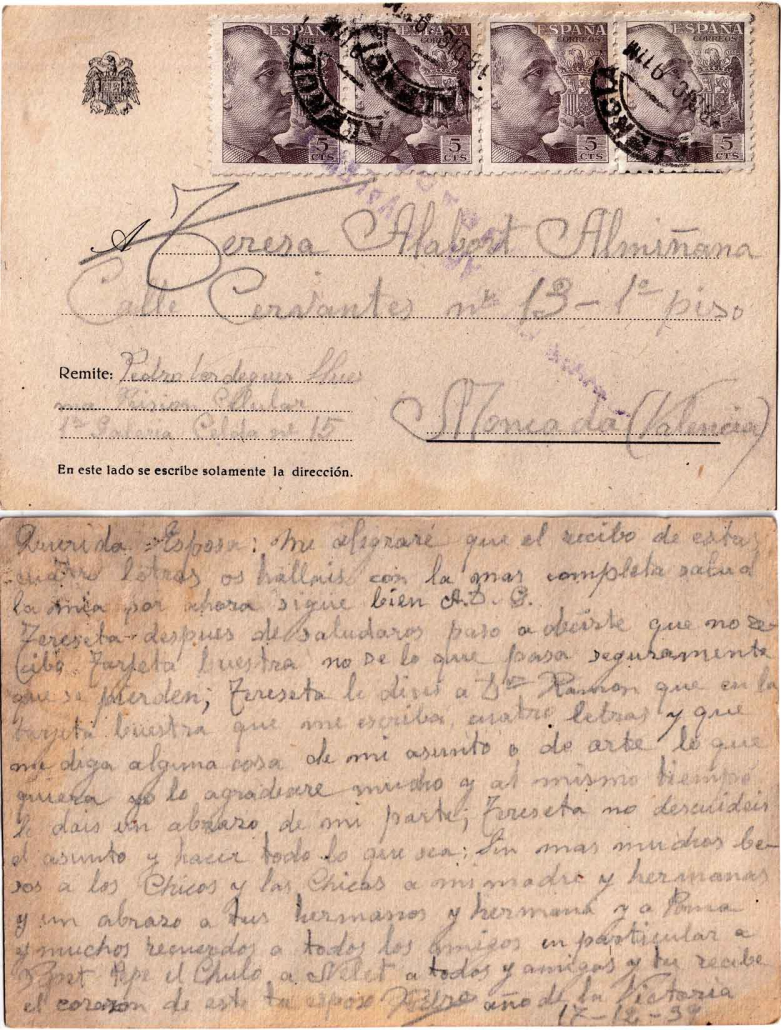 ESPAÑA
CORREOS
5
CTS
ESPAÑA
CORREOS
5
CTS
ESPAÑA
CORREOS
5
CTS
ESPAÑA
CORREOS
5
CTS
VALENCIA
A Teresa Alabort Almiñana
Calle Cervantes nº 13-1º piso
Remite: Pedro
Prision Celular
1ª Galeria Celda nº 15
Moncada (Valencia)
En este lado se escribe solamente la dirección.
Querida Esposa: Me alegraré que el recibo de estas
cuatr letras os hallais con la mas completa salud
la mia por ahora sigue bien A.D.G.
Tereseta despues de saludaros paso a decirte que no re-
cibo Tarjeta buestra no se lo que pasa seguramente
que se pierden; Tereseta le dises a Dn Ramon que en la
tarjeta buestra que me escriba cuatro letras y que
me diga alguna cosa de mi asunto o de arte lo que
quiera yo lo agradeare mucho y al mismo tiempo
le dais un abrazo de mi parte; Tereseta no descuideis
el asunto y hacer todo lo que sea; Sin mas muchos be-
sos a los Chicos y las Chicas a mi madre y hermanas
y un abrazo a tus hermanos y hermana y a
y muchos recuerdos a todos los amigos en particular a
Pepet Pepe el Chulo a Nelet a todos y amigos y tu recibe
el corazon de este tu esposo año de la Victoria
17-12-39